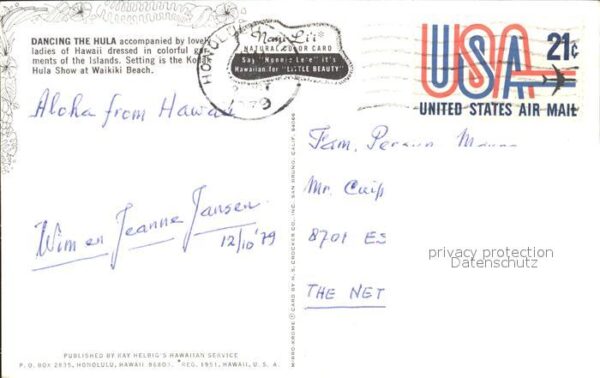 DANCING THE HULA accompanied by lovely
ladies of Hawaii dressed in colorful gar-
ments of the Islands. Setting is the Kodak
Hula Show at Waikiki Beach.
HONOLUL
1979
Nani Li'i
NATURAL COLOR CARD
Say "Nonnie Lee" it's
Hawaiian for "LITTLE BEAUTY"
USA 21¢
UNITED STATES AIR MAIL
Aloha from Hawaii
Wim en Jeanne Jansen.
12/10 '79
Fam.
Mr.
8701 ES
THE NET
privacy protection
Datenschutz
MIRRO-KROME ® CARD BY H. S. CROCKER CO., INC. SAN BRUNO, CALIF. 94066
PUBLISHED BY RAY HELBIG'S HAWAIIAN SERVICE
P. O. BOX 2835, HONOLULU, HAWAII 96803. REG. 1951, HAWAII, U. S. A.